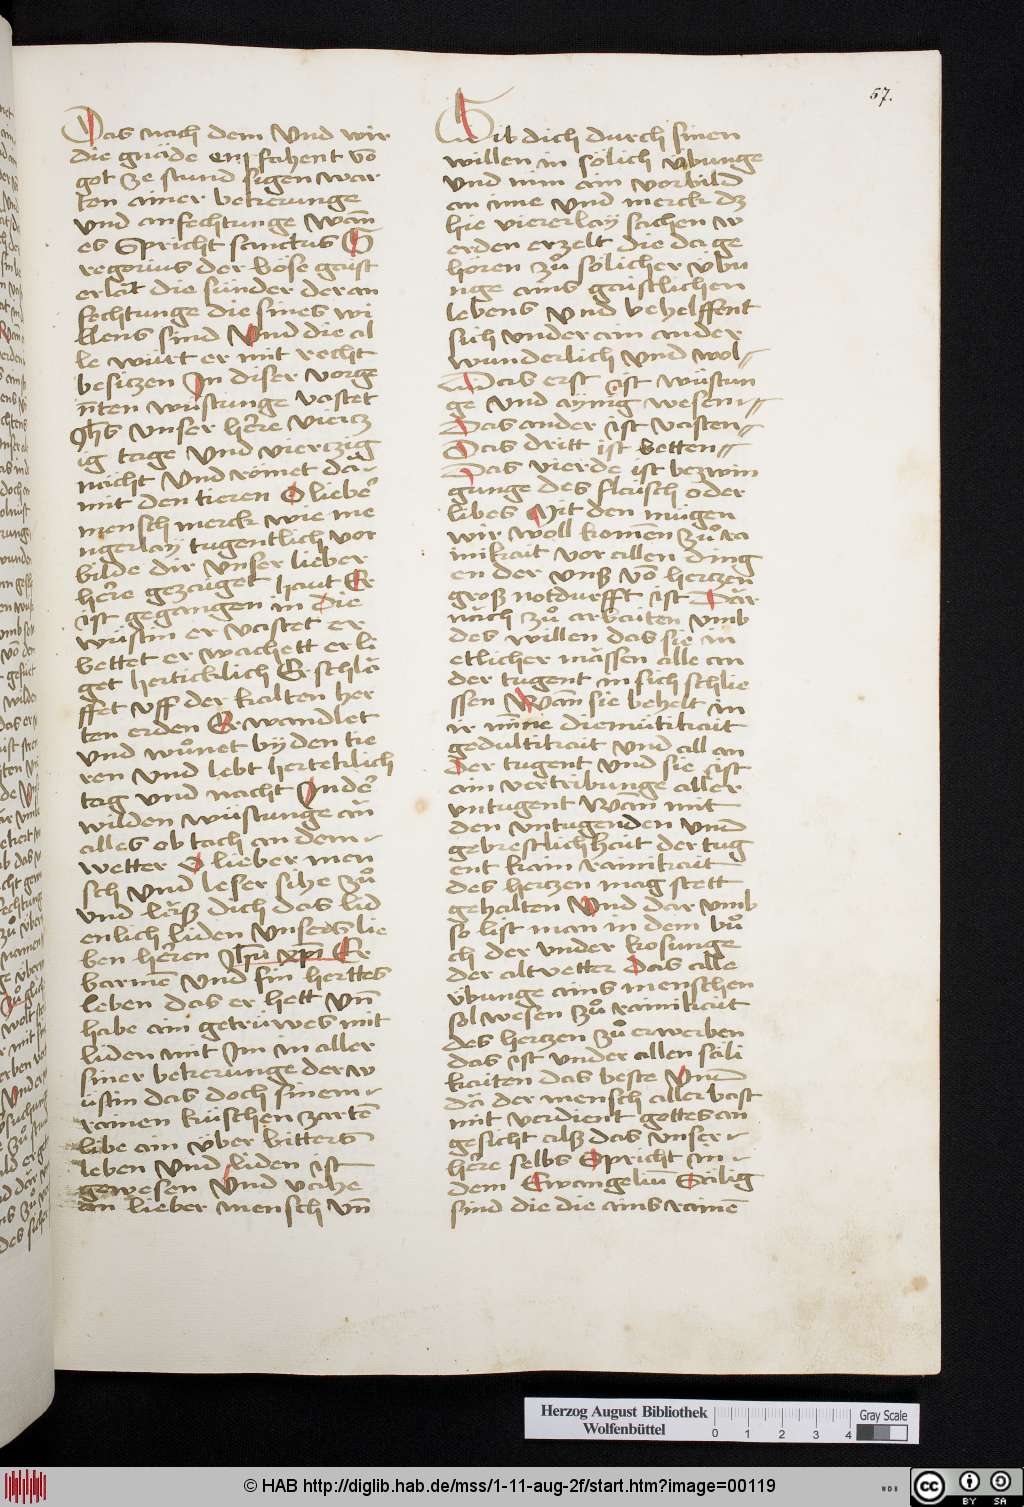 57.
Das nach dem Vnd wir
die gnäde enpfahent vō
got ze stund sigen war
ten ainer bekerunge
vnd anfechtunge wān̄
es Spricht sanctus G
regorius der böse gaist
erlät die sünder der an
fechtunge die sines wi
llens sind Vnd die al
le würt er mit recht
besitzen In diser vorge
n̄ten wüstunge vastet
Jhs vnser here viertz
ig tage Vnd viertzig
nächt Vnd römet da
mit den tieren O lieber
mensch merck wie me
ngerlaÿ tugentlich vor
bilde dir vnser lieber
here gezaiget haut Er
ist gegangen in die
wüstin er vastet er
bettet er wachett er li
get herticklich Er schlä
ffet vff der kalten her
ten erden Er wandlet
vnd wonet bÿ den tie
ren Vnd lebt herteklich
tag vnd nacht In der
wilden wüstunge än
alles ob tach an dem
wetter O lieber men
sch Vnd leser sihe zů
vnd läsz dich das lid
enlich liden vnsers lie
ben heren Jhū xp̄i Er
barmē Vnd sin herttes
leben das er hett vn̄
habe ain getrüwes mit
liden mit Im in aller
siner bekerunge der w
üstin das doch sinem
rainen küschen zartē
libe ain v̈ber bitters
leben Vnd liden ist
gewesen Vnd vahe
an lieber mensch vn̄
Gib dich durch sinen
willen in sölich v̈bunge
vnd nim ain vorbild
an ime vnd merck dz
hie viererlay sachen w
erden erzelt die da ge
hören zů sölicher v̈bu
nge ains gaistlichen
lebens Vnd behelffent
sich vnder ain ander
wunderlich vnd wol
Das erst ist wüstun
ge vnd aÿnig wesen
Das ander ist vasten
Das dritt ist betten
Das vierde ist bezwin
gunge des flaisch oder
libes Mit den mügen
wir woll komen zů ra
inikait vor allen ding
en der vnsz vō hertzen
grosz notdurfft ist Där
näch zů arbaiten vmb
des willen das sie in
etlicher mässen alle an
der tugent in sich schlie
ssen Wān̄ sie behelt in
ir inn̄e diemütikait
gedultikait vnd all an
der tugent vnd sie ist
ain vertribunge aller
vntugent Wān̄ mit
den vntugenden vnd
gebrestlichhait der tug
ent kain rainikait
des hertzen mag stett
gehalten Vnd dar vmb
so list man in dem bů
ch der vnder kosunge
der altvetter Das alle
v̈bunge ains menschen
sol wesen zů rainikait
des hertzen zů erwerben
das ist vnder allen säli
kaiten das beste Vnd
dä der mensch aller vast
mit verdient gottes an
gesicht alsz das vnser
here selbs Spricht in
dem Ewangeliū Sälig
sind die die ains rainē
Herzog August Bibliothek
Wolfenbüttel
0 1 2 3 4
Gray Scale
© HAB http://diglib.hab.de/mss/1-11-aug-2f/start.htm?image=00119
WDB
cc BY SA